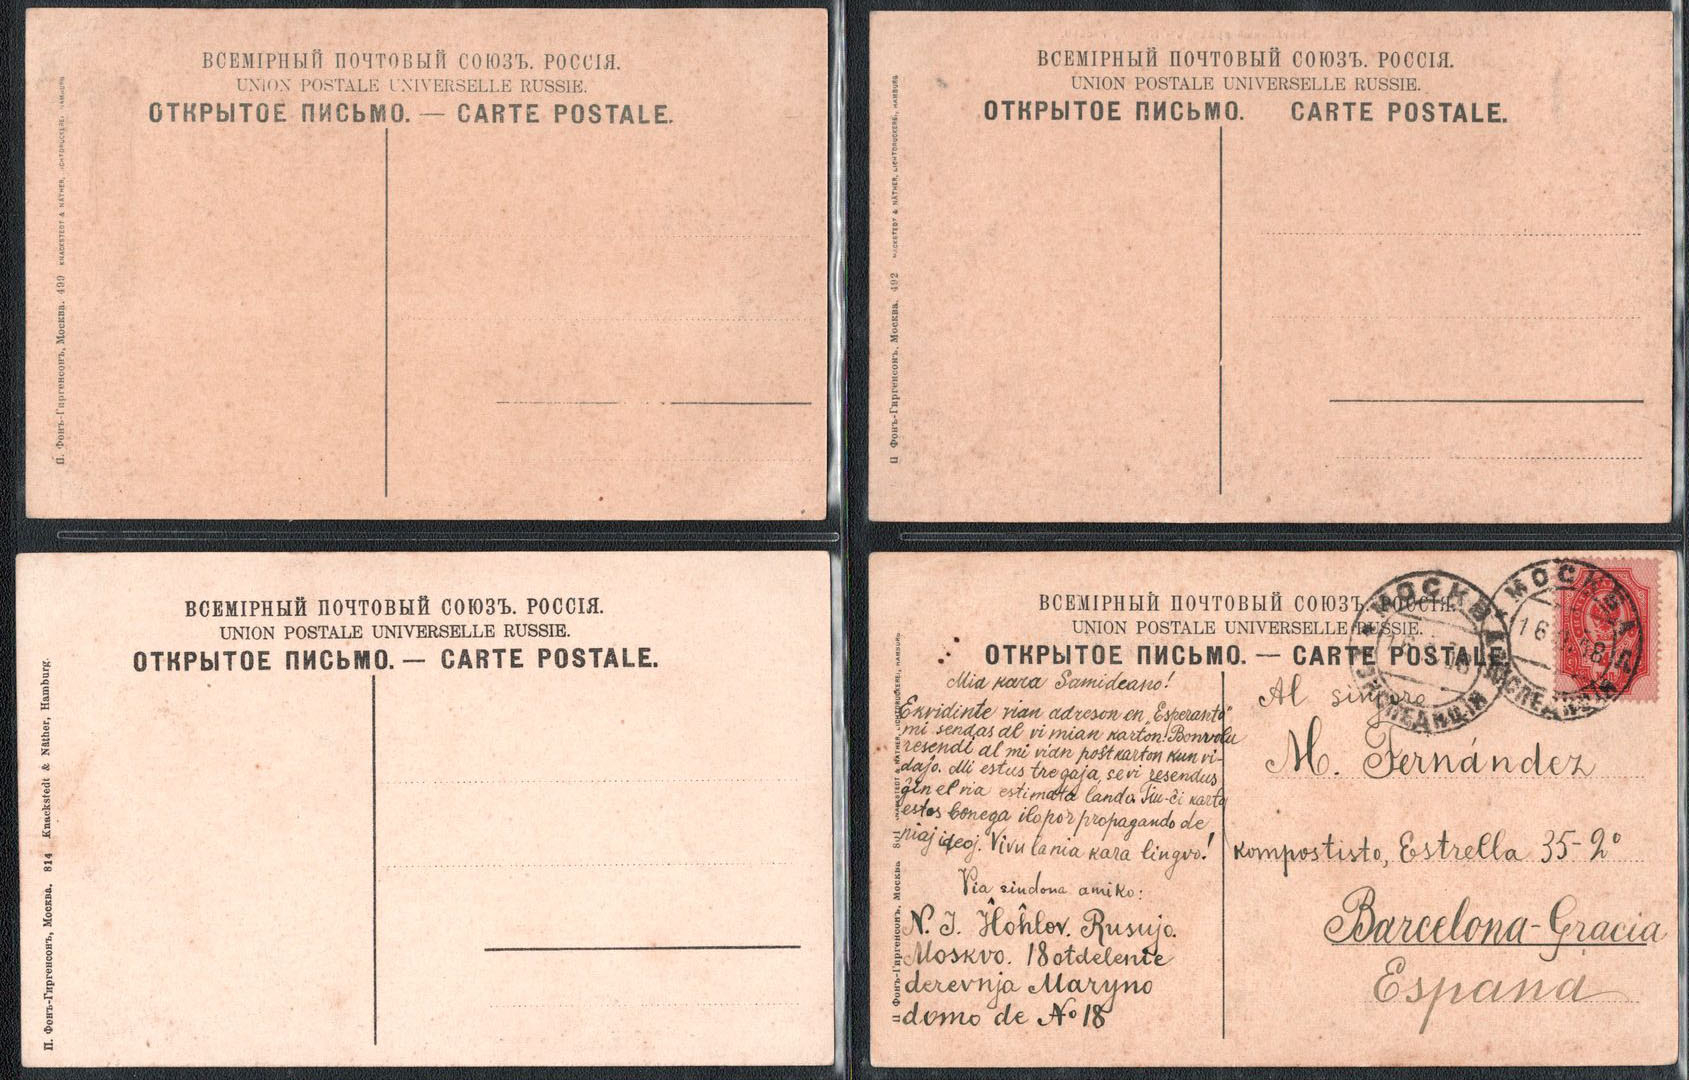 ВСЕМІРНЫЙ ПОЧТОВЫЙ СОЮЗЪ. РОССІЯ.
UNION POSTALE UNIVERSELLE RUSSIE.
ОТКРЫТОЕ ПИСЬМО. — CARTE POSTALE.
П. Фонъ-Гиргенсонъ, Москва. 499 KNACKSTEDT & NÄTHER, LICHTDRUCKEREI, HAMBURG
ВСЕМІРНЫЙ ПОЧТОВЫЙ СОЮЗЪ. РОССІЯ.
UNION POSTALE UNIVERSELLE RUSSIE.
ОТКРЫТОЕ ПИСЬМО. CARTE POSTALE.
П Фонъ-Гиргенсонъ, Москва. 492 KNACKSTEDT & NÄTHER, LICHTDRUCKEREI, HAMBURG
ВСЕМІРНЫЙ ПОЧТОВЫЙ СОЮЗЪ. РОССІЯ.
UNION POSTALE UNIVERSELLE RUSSIE.
ОТКРЫТОЕ ПИСЬМО. — CARTE POSTALE.
П. Фонъ-Гиргенсонъ, Москва. 814 Knackstedt & Näther, Hamburg.
ВСЕМІРНЫЙ ПОЧТОВЫЙ СОЮЗЪ. РОССІЯ.
UNION POSTALE UNIVERSELLE RUSSIE.
ОТКРЫТОЕ ПИСЬМО. — CARTE POSTALE.
МОСКВА ЭКСПЕДИЦІЯ
МОСКВА ЭКСПЕДИЦІЯ
Mia kara Samideano!
Ekvidinte vian adreson en „Esperanto"
mi sendas al vi mian karton. Bonvolu
resendi al mi vian poŝtkarton kun vi-
dajo. Mi estus tre gaja, se vi resendus
ĝin el via estimata lando. Tiu-ĉi karto
estos bonega ilo por propagando de
niaj ideoj. Vivu la nia kara lingvo!
Via sindona amiko:
N. I. Ĥoĥlov. Rusujo.
Moskvo. 18 otdelenie
derevnja Maryno
domo de No 18
Al sinjoro
M. Fernández
kompostisto, Estrella 35-2°
Barcelona-Gracia
Espana
П Фонъ-Гиргенсонъ, Москва.